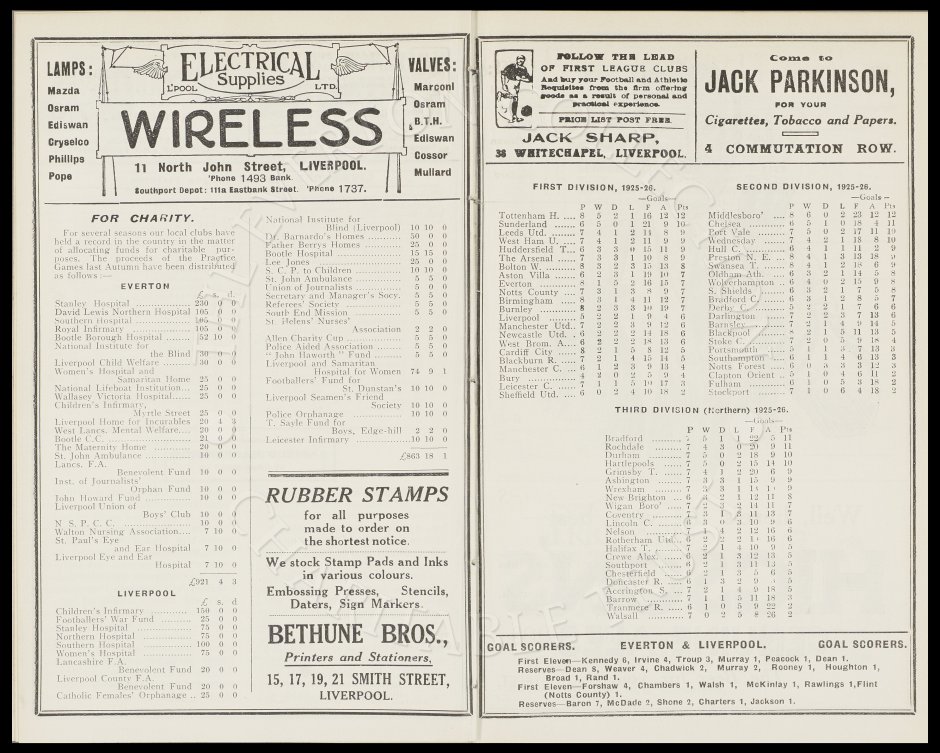 LAMPS:
Mazda
Osram
Ediswan
Cryselco
Phillips
Pope
ELECTRICAL
Supplies
L'POOL LTD.
WIRELESS
11 North John Street, LIVERPOOL.
'Phone 1493 Bank.
Southport Depot: 111a Eastbank Street. 'Phone 1737.
VALVES:
Marconi
Osram
B.T.H.
Ediswan
Cossor
Mullard
FOR CHARITY.
For several seasons our local clubs have
held a record in the country in the matter
of allocating funds for charitable pur-
poses. The proceeds of the Practice
Games last Autumn have been distributed
as follows :—
EVERTON
£ s. d.
Stanley Hospital 230 0 0
David Lewis Northern Hospital 105 0 0
Southern Hospital 105 0 0
Royal Infirmary 105 0 0
Bootle Borough Hospital 52 10 0
National Institute for
the Blind 30 0 0
Liverpool Child Welfare 30 0 0
Women's Hospital and
Samaritan Home 25 0 0
National Lifeboat Institution 25 0 0
Wallasey Victoria Hospital 25 0 0
Children's Infirmary,
Myrtle Street 25 0 0
Liverpool Home for Incurables 20 4 3
West Lancs. Mental Welfare 20 0 0
Bootle C.C. 21 0 0
The Maternity Home 20 0 0
St. John Ambulance 10 0 0
Lancs. F.A.
Benevolent Fund 10 0 0
Inst. of Journalists'
Orphan Fund 10 0 0
John Howard Fund 10 0 0
Liverpool Union of
Boys' Club 10 0 0
N S. P. C. C. 10 0 0
Walton Nursing Association 7 10 0
St. Paul's Eye
and Ear Hospital 7 10 0
Liverpool Eye and Ear
Hospital 7 10 0
£921 4 3
LIVERPOOL
£ s. d.
Children's Infirmary 150 0 0
Footballers' War Fund 25 0 0
Stanley Hospital 75 0 0
Northern Hospital 75 0 0
Southern Hospital 100 0 0
Women's Hospital 75 0 0
Lancashire F.A.
Benevolent Fund 20 0 0
Liverpool County F.A.
Benevolent Fund 20 0 0
Catholic Females' Orphanage 25 0 0
National Institute for
Blind (Liverpool) 10 10 0
Dr. Barnardo's Homes 50 0 0
Father Berrys Homes 25 0 0
Bootle Hospital 15 15 0
Lee Jones 25 0 0
S. C. P. to Children 10 10 0
St. John Ambulance 5 5 0
Union of Journalists 5 0 0
Secretary and Manager's Socy. 5 5 0
Referees' Society 5 5 0
South End Mission 5 5 0
St. Helens' Nurses'
Association 2 2 0
Allen Charity Cup 5 5 0
Police Aided Association 5 5 0
"John Haworth" Fund 5 5 0
Liverpool and Samaritan
Hospital for Women 74 9 1
Footballers' Fund for
St. Dunstan's 10 10 0
Liverpool Seamen's Friend
Society 10 10 0
Police Orphanage 10 10 0
T. Sayle Fund for
Boys, Edge-hill 2 2 0
Leicester Infirmary 10 10 0
£863 18 1
RUBBER STAMPS
for all purposes
made to order on
the shortest notice.
We stock Stamp Pads and Inks
in various colours.
Embossing Presses, Stencils,
Daters, Sign Markers.
BETHUNE BROS.,
Printers and Stationers,
15, 17, 19, 21 SMITH STREET,
LIVERPOOL.
FOLLOW THE LEAD
OF FIRST LEAGUE CLUBS
And buy your Football and Athletic
Requisites from the firm offering
goods as a result of personal and
practical experience.
PRICE LIST POST FREE.
JACK SHARP,
38 WHITECHAPEL, LIVERPOOL.
Come to
JACK PARKINSON,
FOR YOUR
Cigarettes, Tobacco and Papers.
4 COMMUTATION ROW.
FIRST DIVISION, 1925-26.
—Goals—
P W D L F A Pts
Tottenham H. 8 5 2 1 16 12 12
Sunderland 6 5 0 1 21 9 10
Leeds Utd. 7 4 1 2 14 8 9
West Ham U. 7 4 1 2 11 9 9
Huddersfield T. 6 3 3 0 15 11 9
The Arsenal 7 3 3 1 10 8 9
Bolton W. 8 3 2 3 15 13 8
Aston Villa 6 2 3 1 19 10 7
Everton 8 1 5 2 16 15 7
Notts County 7 3 1 3 8 9 7
Birmingham 8 3 1 4 11 12 7
Burnley 8 2 3 3 10 19 7
Liverpool 5 2 2 1 9 4 6
Manchester Utd. 7 2 2 3 9 12 6
Newcastle Utd. 6 2 2 2 14 18 6
West Brom. A. 6 2 2 2 18 13 6
Cardiff City 8 2 1 5 8 12 5
Blackburn R. 7 2 1 4 15 14 5
Manchester C. 6 1 2 3 9 13 4
Bury 4 2 0 2 5 9 4
Leicester C. 7 1 1 5 10 17 3
Sheffield Utd. 6 0 2 4 10 18 2
SECOND DIVISION, 1925-26.
—Goals—
P W D L F A Pts
Middlesboro' 8 6 0 2 23 12 12
Chelsea 6 5 1 0 18 4 11
Port Vale 7 5 0 2 17 11 10
Wednesday 7 4 2 1 18 8 10
Hull C. 6 4 1 1 11 2 9
Preston N. E. 8 4 1 3 13 18 9
Swansea T. 8 4 1 2 18 6 9
Oldham Ath. 6 3 2 1 14 5 8
Wolverhampton 6 4 0 2 15 9 8
S. Shields 6 3 2 1 7 5 8
Bradford C. 6 3 1 2 8 5 7
Derby C. 5 2 2 1 7 6 6
Darlington 7 2 2 3 7 13 6
Barnsley 7 2 1 4 9 14 5
Blackpool 7 2 1 5 11 13 5
Stoke C. 7 2 0 5 9 18 4
Portsmouth
Southampton 6 1 1 4 6 13 3
Notts Forest 6 0 3 3 3 12 3
Clapton Orient 5 1 0 4 6 11 2
Fulham 6 1 0 5 3 18 2
Stockport 7 1 0 6 4 18 2
THIRD DIVISION (Northern) 1925-26.
—Goals—
P W D L F A Pts
Bradford 7 5 1 1 22 5 11
Rochdale 7 4 3 0 20 9 11
Durham 7 5 0 2 18 9 10
Hartlepools 7 5 0 2 15 14 10
Grimsby T. 7 4 1 2 20 6 9
Ashington 7 3 3 1 15 9 9
Wrexham
New Brighton 6 3 2 1 12 11 8
Wigan Boro' 7 2 3 2 14 11 7
Coventry 7 3 1 3 11 13 7
Lincoln C. 6 3 0 3 10 9 6
Nelson 7 1 4 2 12 16 6
Rotherham Utd.
Halifax T. 7 2 1 4 10 9 5
Crewe Alex. 6 2 1 3 12 13 5
Southport 6 2 1 3 11 13 5
Chesterfield 6 2 1 3 5 6 5
Doncaster R.
Accrington S. 7 2 1 4 9 18 5
Barrow 7 1 1 5 11 18 3
Tranmere R. 6 1 0 5 9 22 2
Walsall 7 0 2 5 8 26 2
GOAL SCORERS. EVERTON & LIVERPOOL. GOAL SCORERS.
First Eleven—Kennedy 6, Irvine 4, Troup 3, Murray 1, Peacock 1, Dean 1.
Reserves—Dean 8, Weaver 4, Chadwick 2, Murray 2, Rooney 1, Houghton 1,
Broad 1, Rand 1.
First Eleven—Forshaw 4, Chambers 1, Walsh 1, McKinlay 1, Rawlings 1, Flint
(Notts County) 1.
Reserves—Baron 7, McDade 2, Shone 2, Charters 1, Jackson 1.